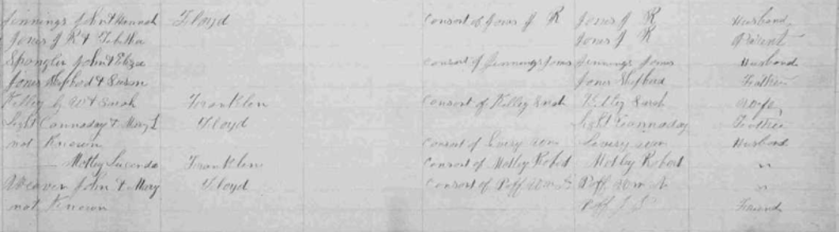 Jennings John & Hannah Floyd Consort of Jones J R Jones J R Husband
Jones J R & Tabitha Jones J R Parent
Spangler John & Eliza Consort of Jennings Jones Jennings Jones Husband
Jones Shepherd & Susan Jones Shepherd Father
Kelley & Sarah Franklin Consort of Kelley Sarah Kelley Sarah wife
Light Cannaday & Mary L Floyd Light Cannaday Father
not Known Consort of Wm Wm Husband
Motley Lucinda Franklin Consort of Motley Robert Motley Robert "
Weaver John & Mary Floyd Consort of Poff Wm Poff Wm "
not Known Poff J Friend